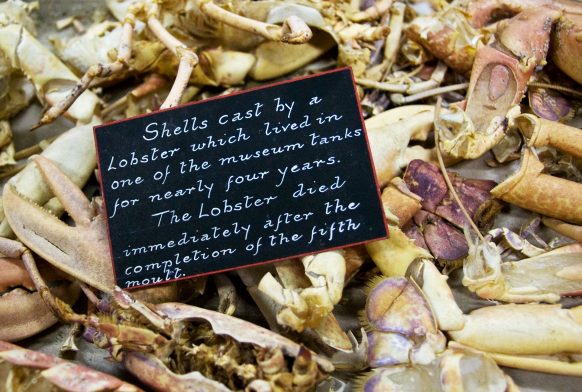 Shells cast by a
Lobster which lived in
one of the museum tanks
for nearly four years.
The Lobster died
immediately after the
completion of the fifth
moult.